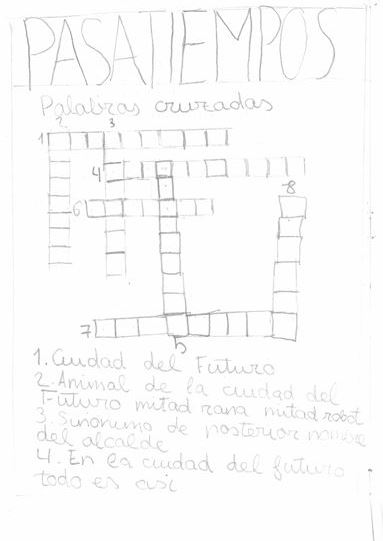 PASATIEMPOS
Palabras cruzadas
2 3
1
4
8
6
7
5
1. Ciudad del Futuro
2. Animal de la ciudad del
Futuro mitad rana mitad robot
3. Sinonimo de posterior nombre
del alcalde
4. En la ciudad del futuro
todo es asi